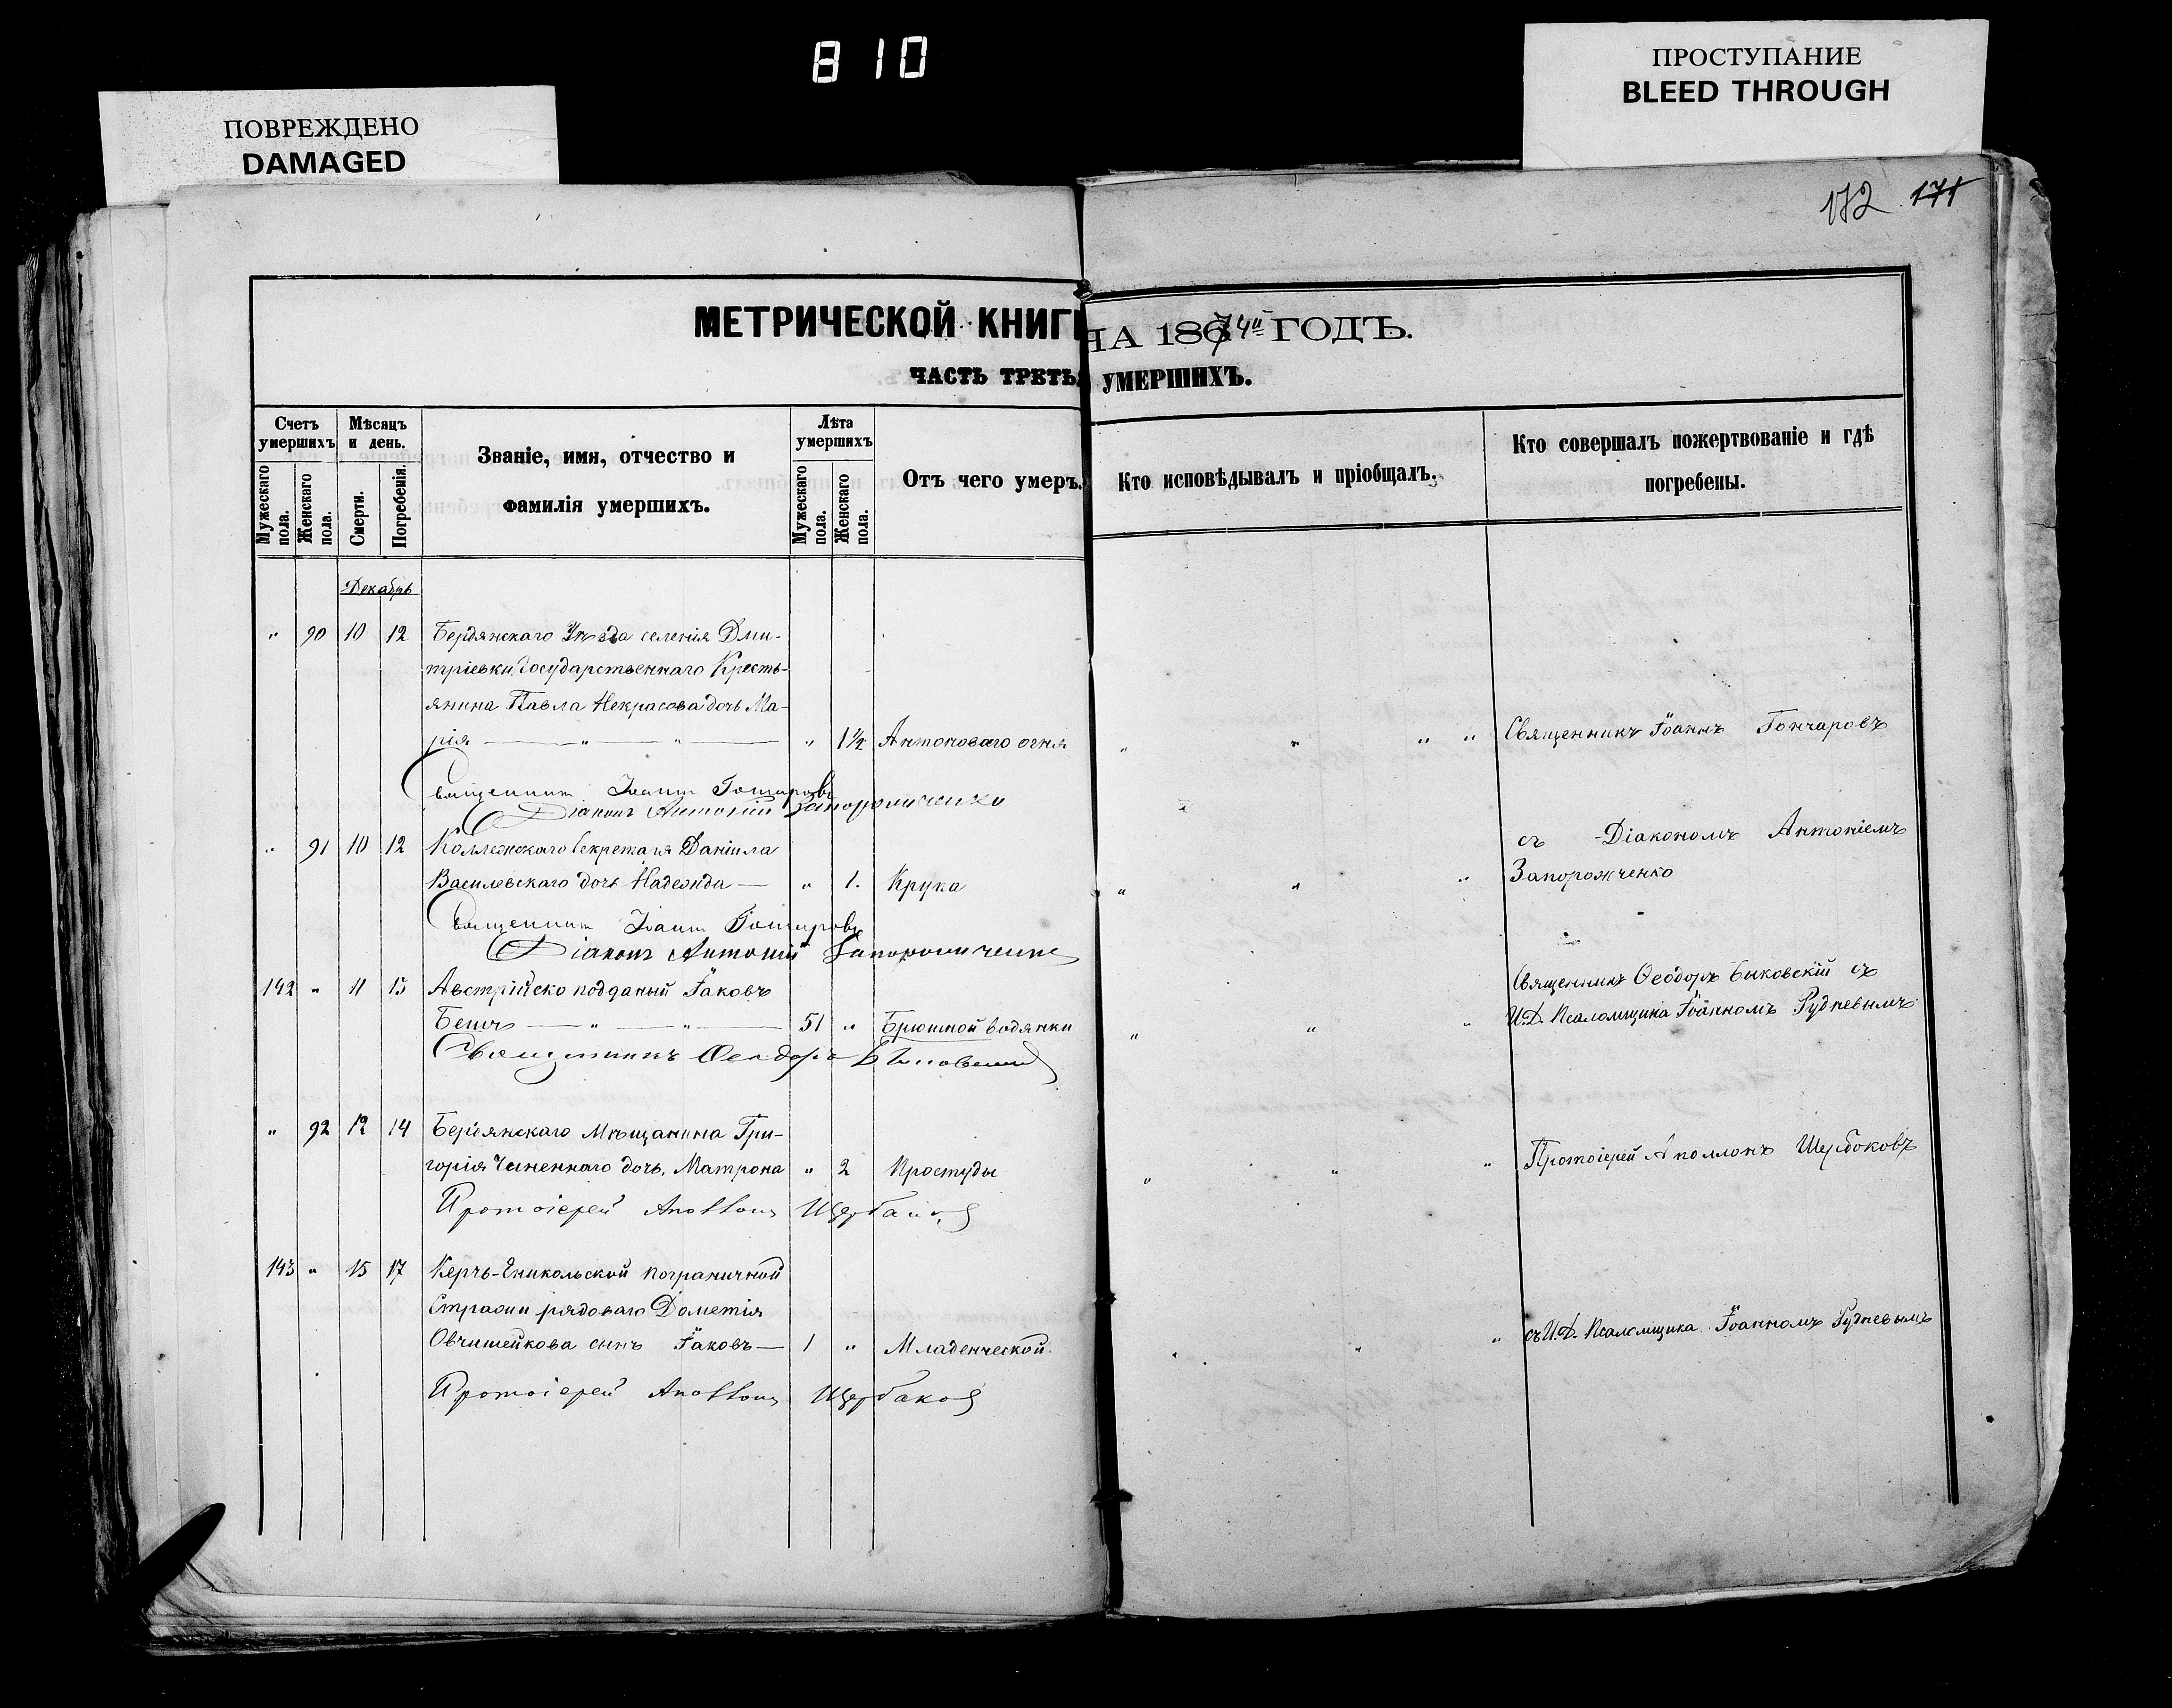 8 10
ПОВРЕЖДЕНО
DAMAGED
ПРОСТУПАНИЕ
BLEED THROUGH
172 171
МЕТРИЧЕСКОЙ КНИГИ НА 1874й ГОДЪ.
ЧАСТЬ ТРЕТЬЯ УМЕРШИХЪ.
Счетъ умершихъ
Мужескаго пола.
Женскаго пола.
Мѣсяцъ и день.
Смерти.
Погребенія.
Званіе, имя, отчество и
фамилія умершихъ.
Лѣта умершихъ
Мужескаго пола.
Женскаго пола.
Отъ чего умеръ.
Кто исповѣдывалъ и пріобщалъ.
Кто совершалъ пожертвованіе и гдѣ
погребены.
Декабрь
" 90 10 12 Бердянскаго Уѣзда селенія Дми-
тріевки Государственнаго Кресть-
янина Павла Некрасова дочь Ма-
рія — " — " — " 1½ Антоноваго огня " " " " Священникъ Іоаннъ Гончаровъ
Священникъ Іоаннъ Гончаровъ
Діаконъ Антоній Запорожченко
" 91 10 12 Коллежскаго Секретаря Даніила съ Діакономъ Антоніемъ
Василевскаго дочь Надежда — " 1. Крупа " " " Запорожченко
Священникъ Іоаннъ Гончаровъ
Діаконъ Антоній Запорожченко
142 " 11 13 Австрійско подданый Іаковъ Священникъ Ѳеодоръ Быковскій съ
— " — " — 51 " Брюшной водянки " " " И.Д. Псаломщика Іоанномъ Рудневымъ
Священникъ Ѳеодоръ Быковскій
" 92 12 14 Бердянскаго Мѣщанина Гри-
горія дочь Матрона " 2 Простуды " " " Протоіерей Аполлонъ Щербаковъ
Протоіерей Аполлонъ Щербаковъ
143 " 15 17 Керчь-Еникольской пограничной
Стражи рядоваго Дометія
сынъ Іаковъ — 1 " Младенческой " " съ И.Д. Псаломщика Іоанномъ Рудневымъ
Протоіерей Аполлонъ Щербаковъ